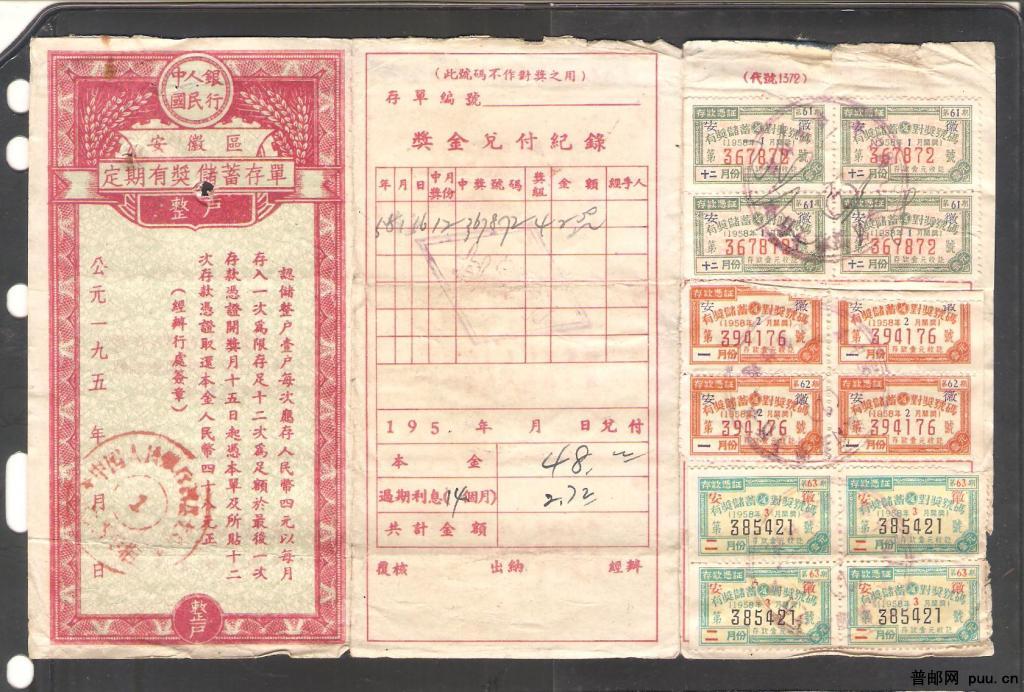 中人銀
國民行
安徽區
定期有獎儲蓄存單
整戶
認儲整户壹户每次應存人民幣四元以每月
存入一次為限存足十二次為足額於最後一次
存款憑證開獎月十五日起憑本單及所貼十二
次存款憑證取還本金人民幣四十八元正
(經辦行處簽章)
公元一九五 年 月 日
整戶
(此號碼不作對獎之用)
存單編號
獎金兌付紀錄
年 月 日 中獎月份 中獎號碼 獎組 金額 經手人
58 1 16 12 367872 4
195 . 年 月 日兌付
本金 48.
過期利息(14個月) 2.72
共計金額
覆核 出納 經辦
(代號1372)
存款憑証 第61期
安 徽
有獎儲蓄對獎號碼
(1958年1月開獎)
第 367872 號
十二月份 存款壹元收訖
存款憑証 第61期
安 徽
有獎儲蓄對獎號碼
(1958年1月開獎)
第 367872 號
十二月份 存款壹元收訖
存款憑証 第61期
安 徽
有獎儲蓄對獎號碼
(1958年1月開獎)
第 367872 號
十二月份 存款壹元收訖
存款憑証 第61期
安 徽
有獎儲蓄對獎號碼
(1958年1月開獎)
第 367872 號
十二月份 存款壹元收訖
存款憑証
安 徽
有獎儲蓄對獎號碼
(1958年2月開獎)
第 394176 號
一月份 存款壹元收訖
安 徽
有獎儲蓄對獎號碼
(1958年2月開獎)
第 394176 號
一月份 存款壹元收訖
存款憑証 第62期
安 徽
有獎儲蓄對獎號碼
(1958年2月開獎)
第 394176 號
一月份 存款壹元收訖
存款憑証 第62期
安 徽
有獎儲蓄對獎號碼
(1958年2月開獎)
第 394176 號
一月份 存款壹元收訖
存款憑証 第63期
安 徽
有獎儲蓄對獎號碼
(1958年3月開獎)
第 385421 號
二月份 存款壹元收訖
存款憑証 第63期
安 徽
有獎儲蓄對獎號碼
(1958年3月開獎)
第 385421 號
二月份 存款壹元收訖
存款憑証 第63期
安 徽
有獎儲蓄對獎號碼
(1958年3月開獎)
第 385421 號
二月份 存款壹元收訖
存款憑証 第63期
安 徽
有獎儲蓄對獎號碼
(1958年3月開獎)
第 385421 號
二月份 存款壹元收訖
普邮网 puu.cn